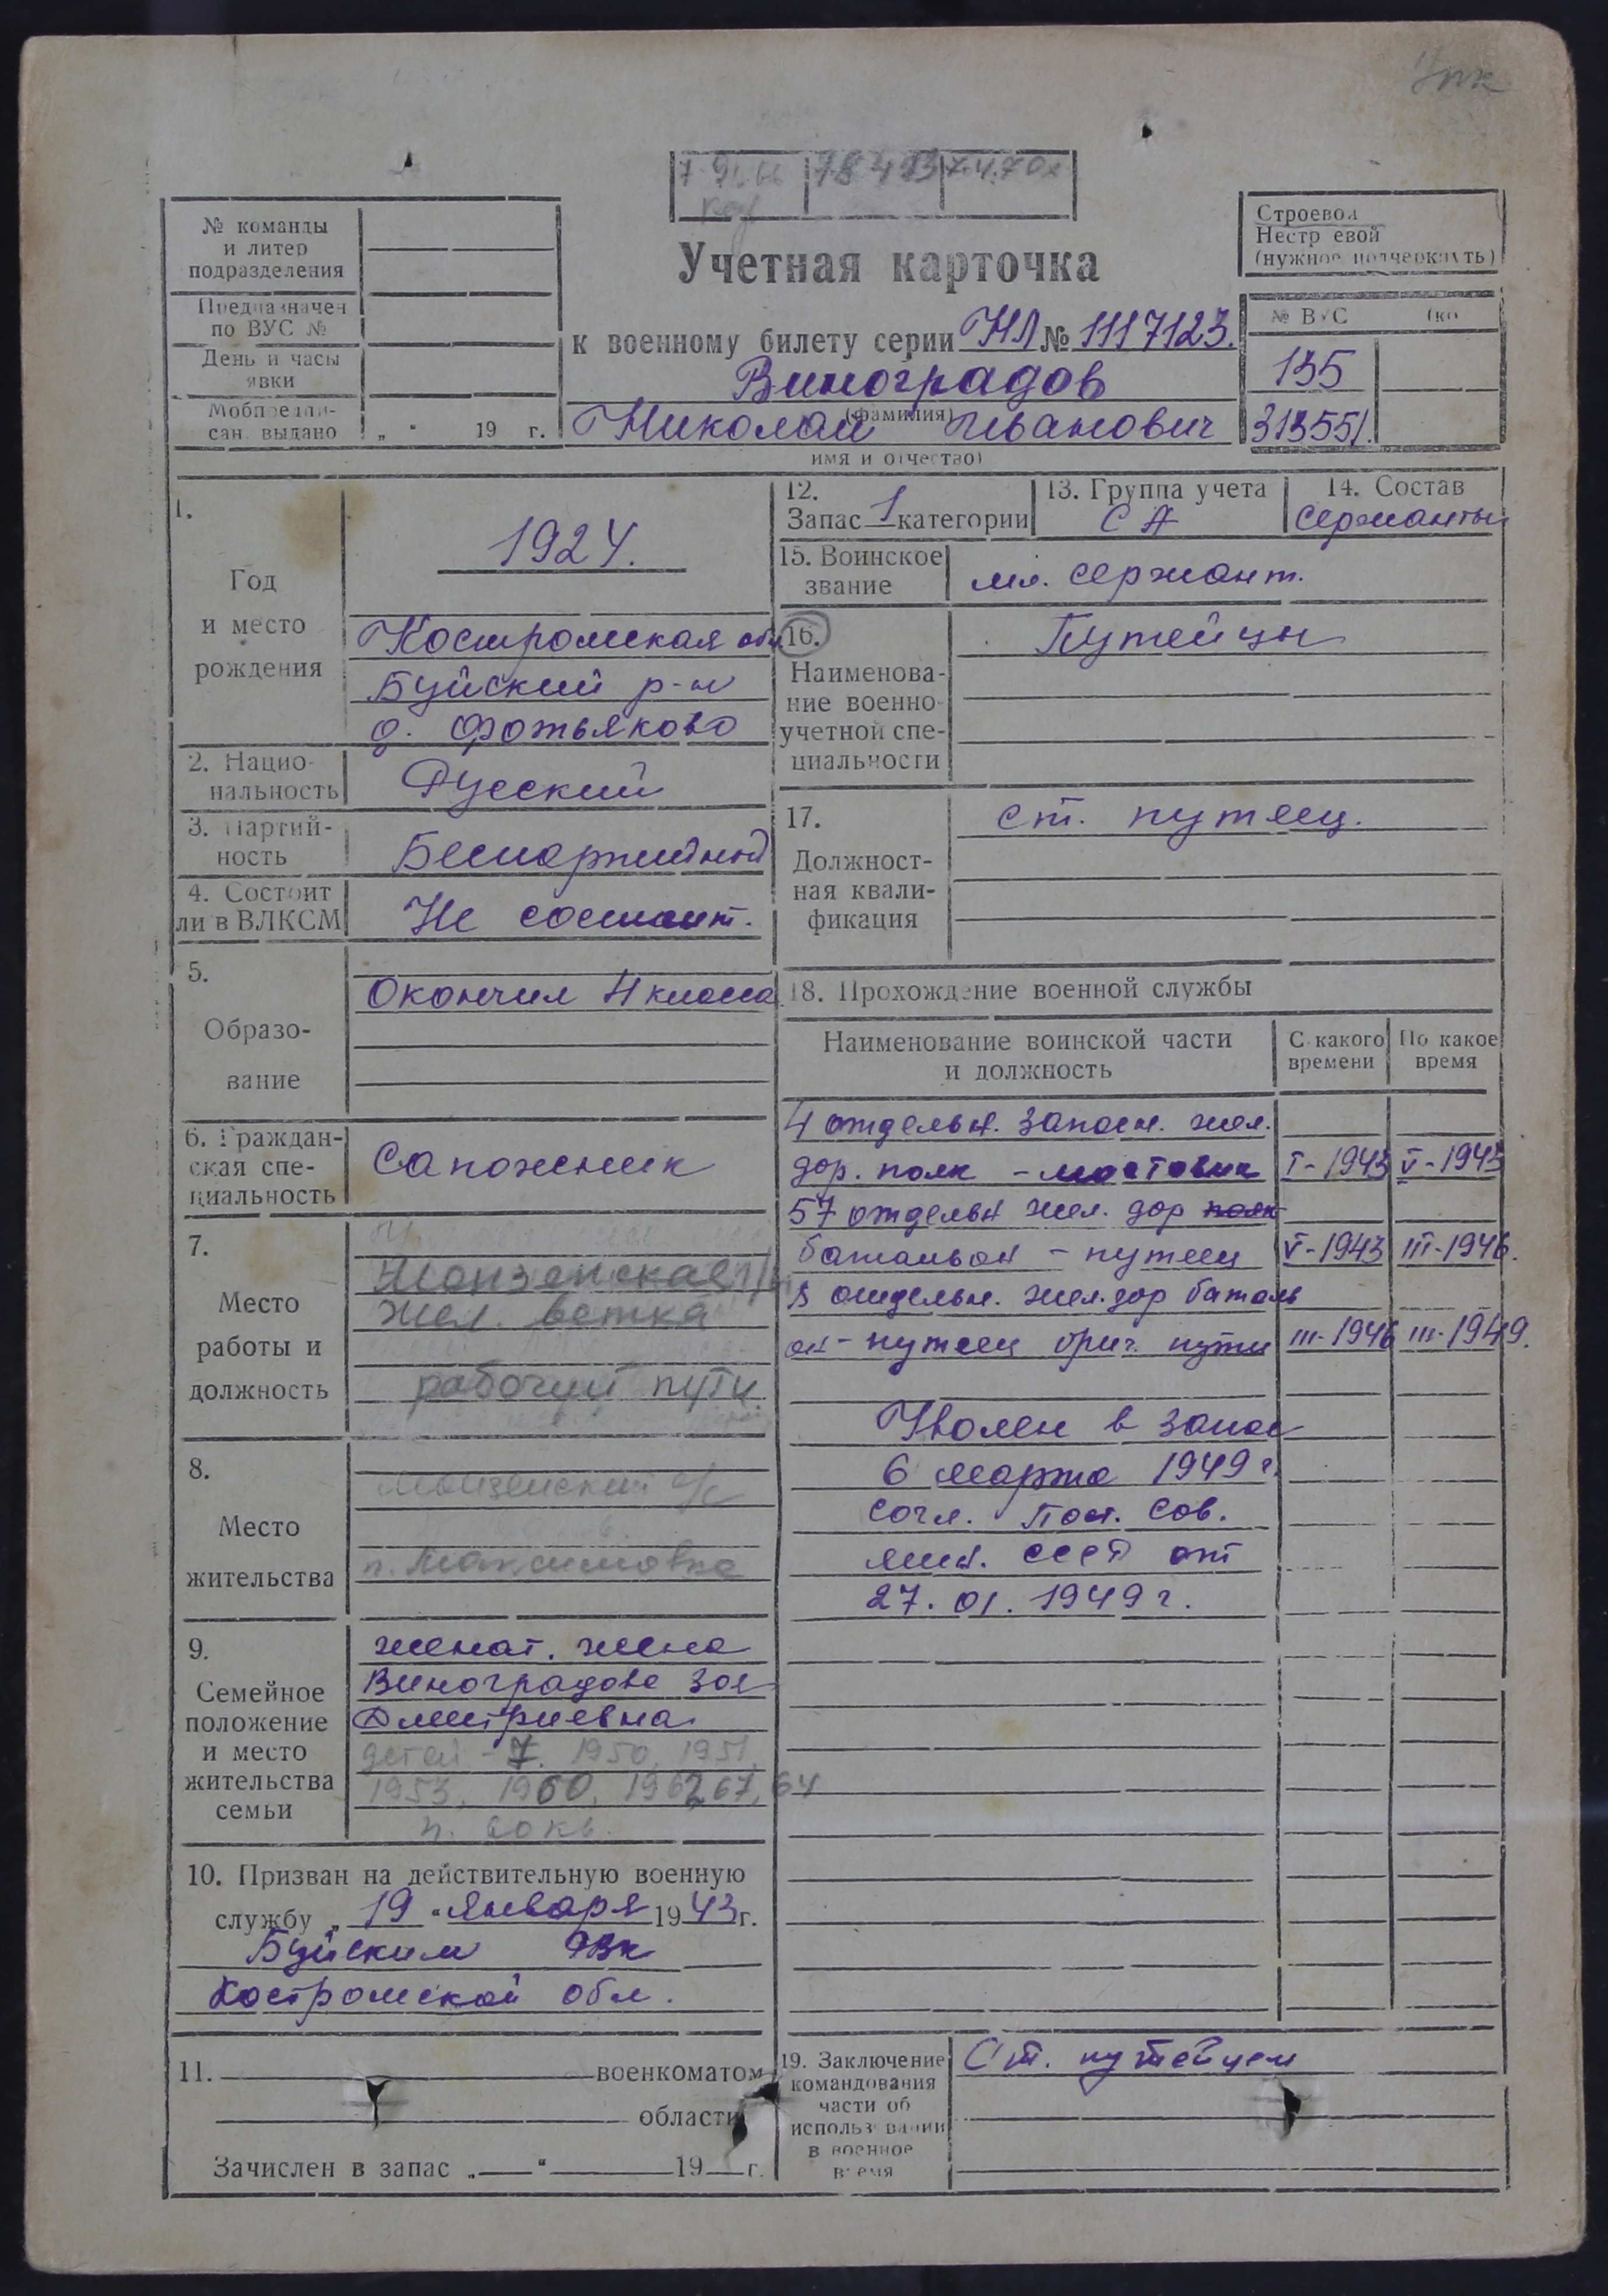 Учетная карточка
к военному билету серии НЛ № 1117123.
Виноградов
(фамилия)
Николай Иванович
имя и отчество)
№ команды
и литер
подразделения
Предназначен
по ВУС №
День и часы
явки
Мобпредпи-
сан. выдано „ “ 19 г.
Строевой
Нестроевой
(нужное подчеркнуть)
№ ВУС
135
313551.
1.
Год
и место
рождения
1924.
Костромская обл
Буйский р-н
д. Фотьяково
2. Нацио-
нальность
Русский
3. Партий-
ность
Беспартийный
4. Состоит
ли в ВЛКСМ
Не состоит.
5.
Образо-
вание
Окончил 4 класса
6. Граждан-
ская спе-
циальность
Сапожник
7.
Место
работы и
должность
Монзенская
жел. ветка
рабочий пути
8.
Место
жительства
Монзенский с/с
п. Максимовка
9.
Семейное
положение
и место
жительства
семьи
женат. жена
Виноградова Зоя
Дмитриевна
детей - 7. 1950, 1951,
1953, 1960, 1962, 67, 64
10. Призван на действительную военную
службу „19“ января 1943 г.
Буйским РВК
Костромской обл.
11. военкоматом
области
Зачислен в запас „ “ 19 г.
12.
Запас 1 категории
13. Группа учета
СА
14. Состав
Сержанты
15. Воинское
звание
мл. сержант.
16.
Наименова-
ние военно
учетной спе-
циальности
Путейцы
17.
Должност-
ная квали-
фикация
ст. путеец.
18. Прохождение военной службы
Наименование воинской части
и должность
С какого
времени
По какое
время
4 отдельн. запасн. жел.
дор. полк - мостовик I-1943 V-1943
57 отдельн жел. дор полк
батальон - путеец V-1943 III-1946.
отдельн. жел. дор баталь
он - путеец бриг. пути III-1946 III-1949.
Уволен в запас
6 марта 1949 г.
Согл. Пост. Сов.
мин. СССР от
27.01.1949 г.
19. Заключение
командования
части об
использовании
в военное
время
Ст. путейцем